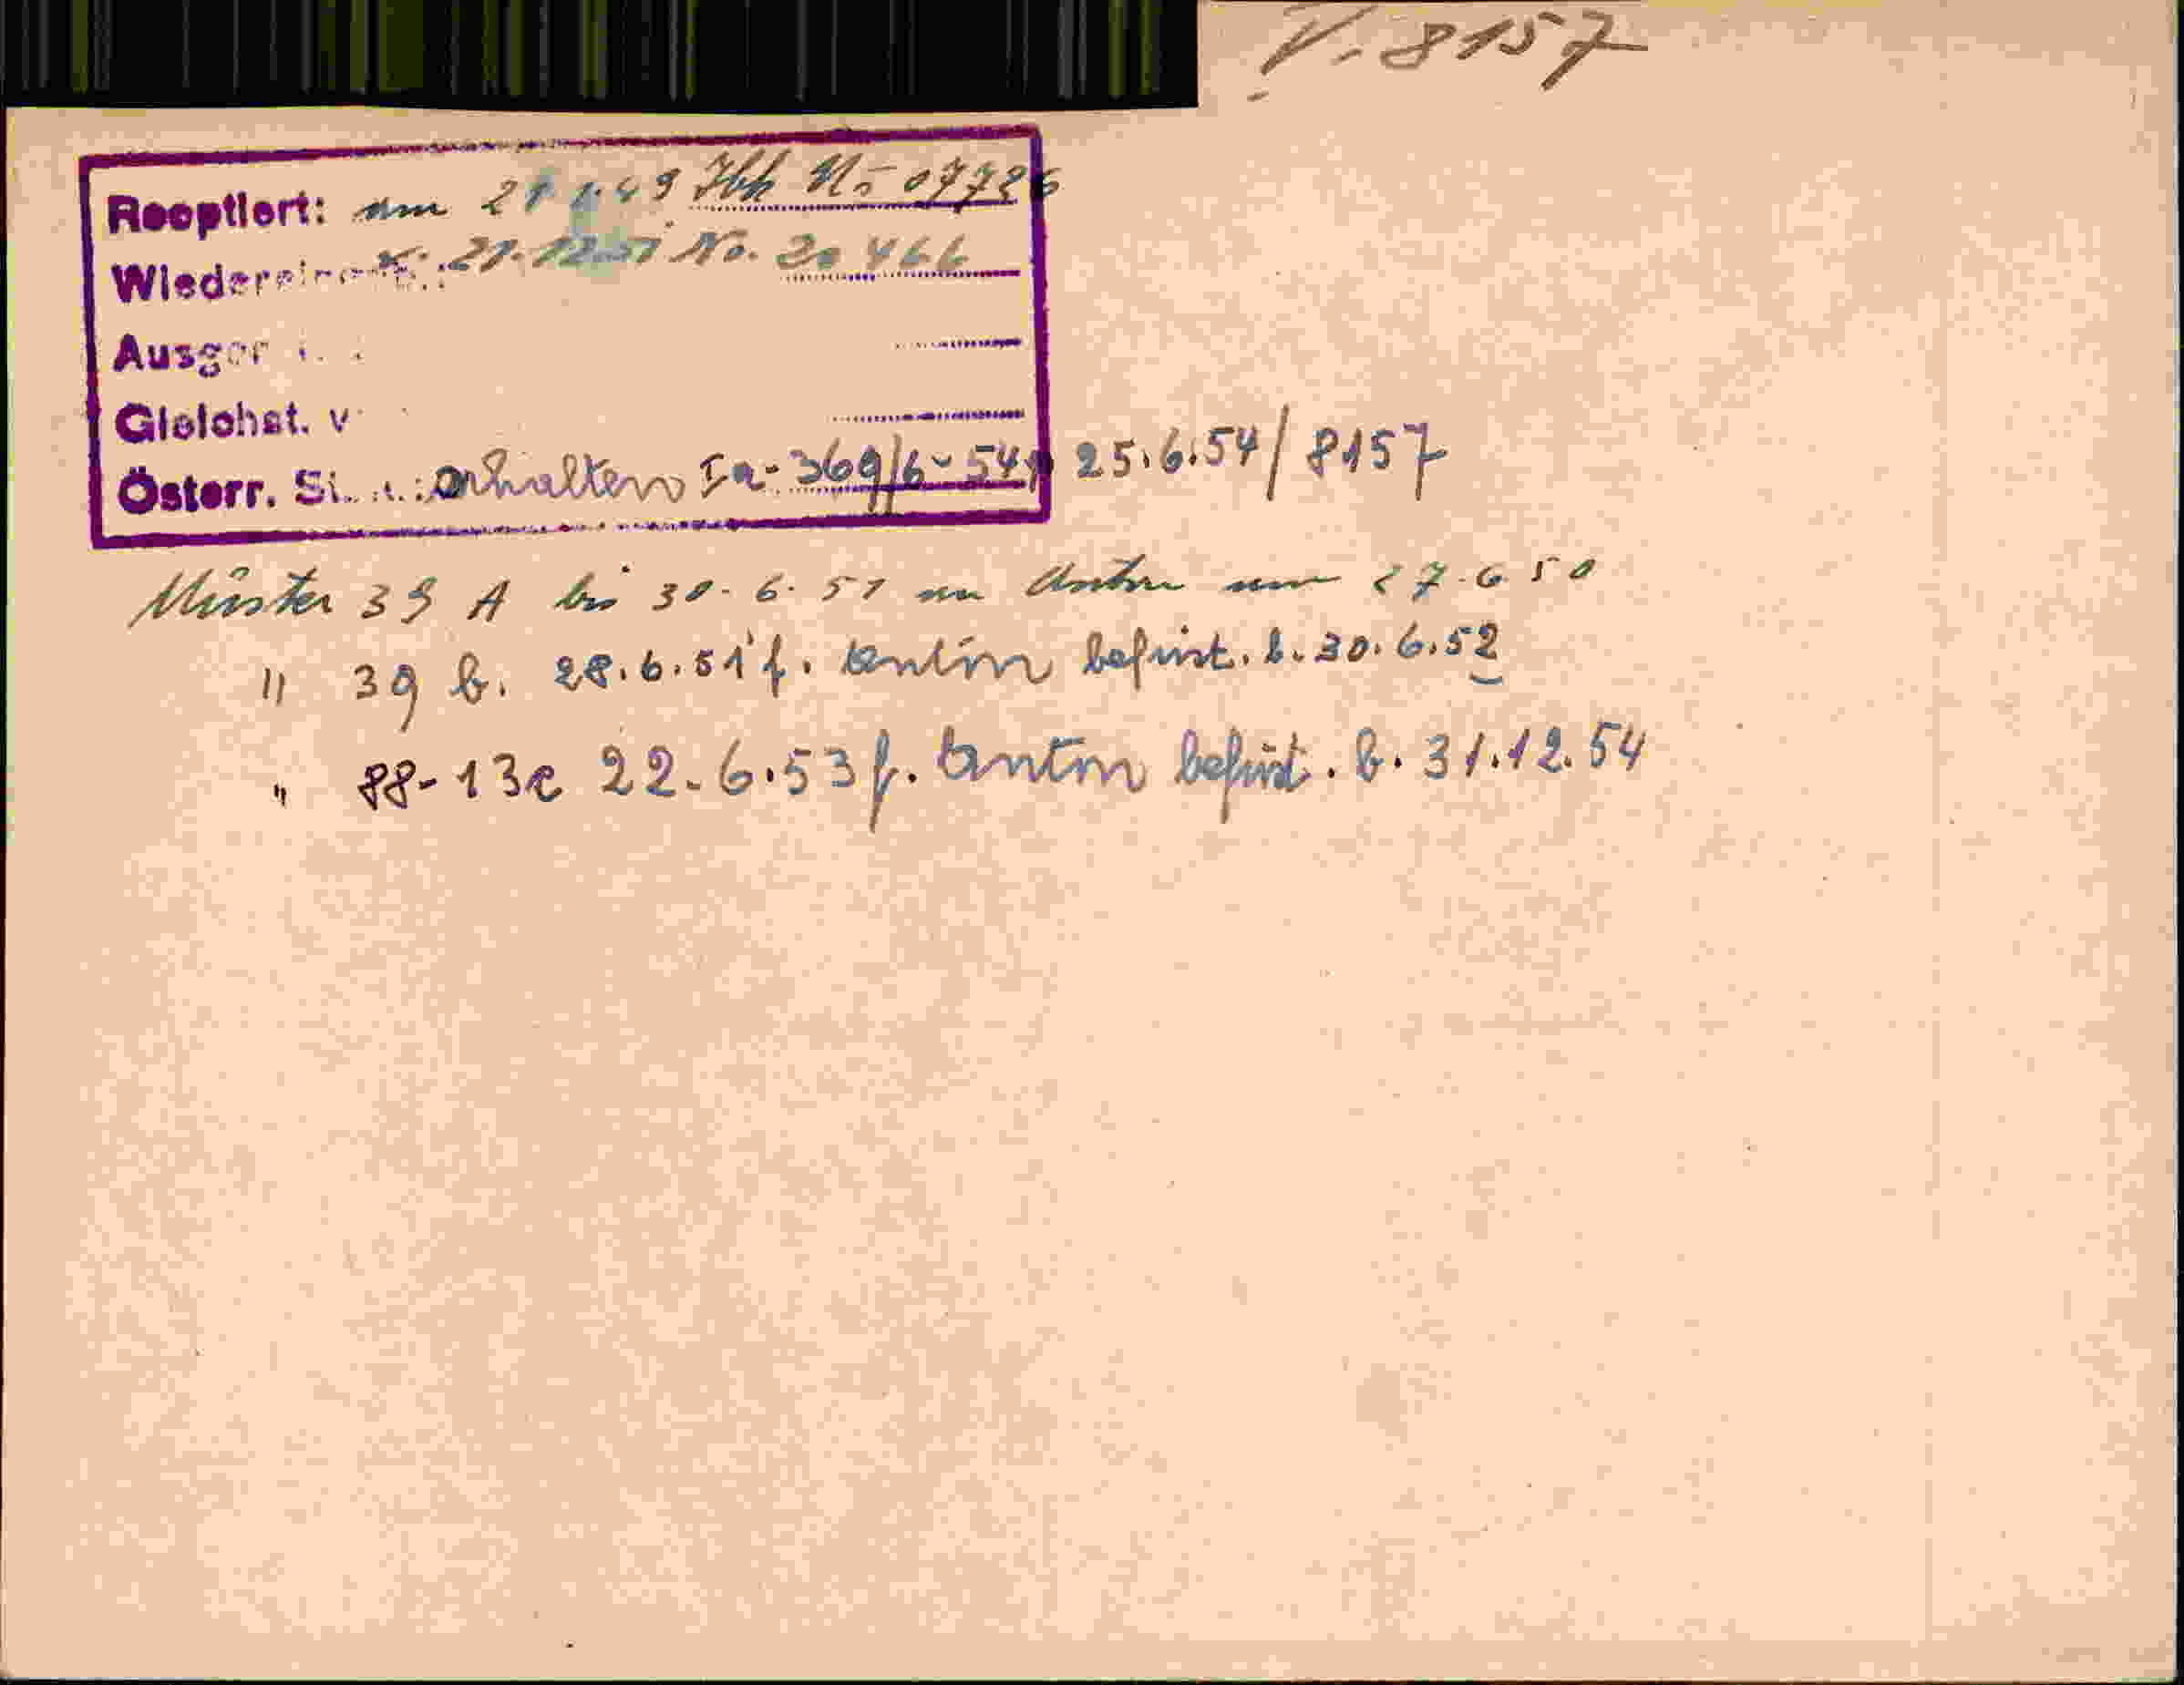 V. 8157
Reoptiert: am 21 1.49 No 07726
Wieder 21.12.51 No. 20466
Ausger
Gleichst. v
Österr. St. erhalten Ia-369/6-54, 25.6.54/8157
Muster 39 A bis 30.6.51 am 27.6 50
" 39 b. 28.6.51 f. befrist. b. 30.6.52
" 88-13c 22.6.53 f. befrist. b. 31.12.54